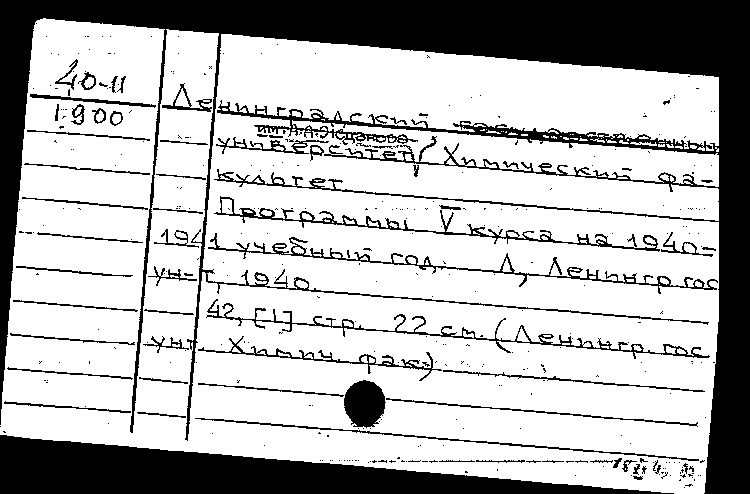 40-11
1900
Ленинградский государственный
им. А.А. Жданова
университет, Химический фа-
культет
Программы V курса на 1940-
1941 учебный год. Л, Ленингр. гос
ун-т, 1940.
42, [1] стр. 22 см. (Ленингр. гос
унт. Химич. фак.)